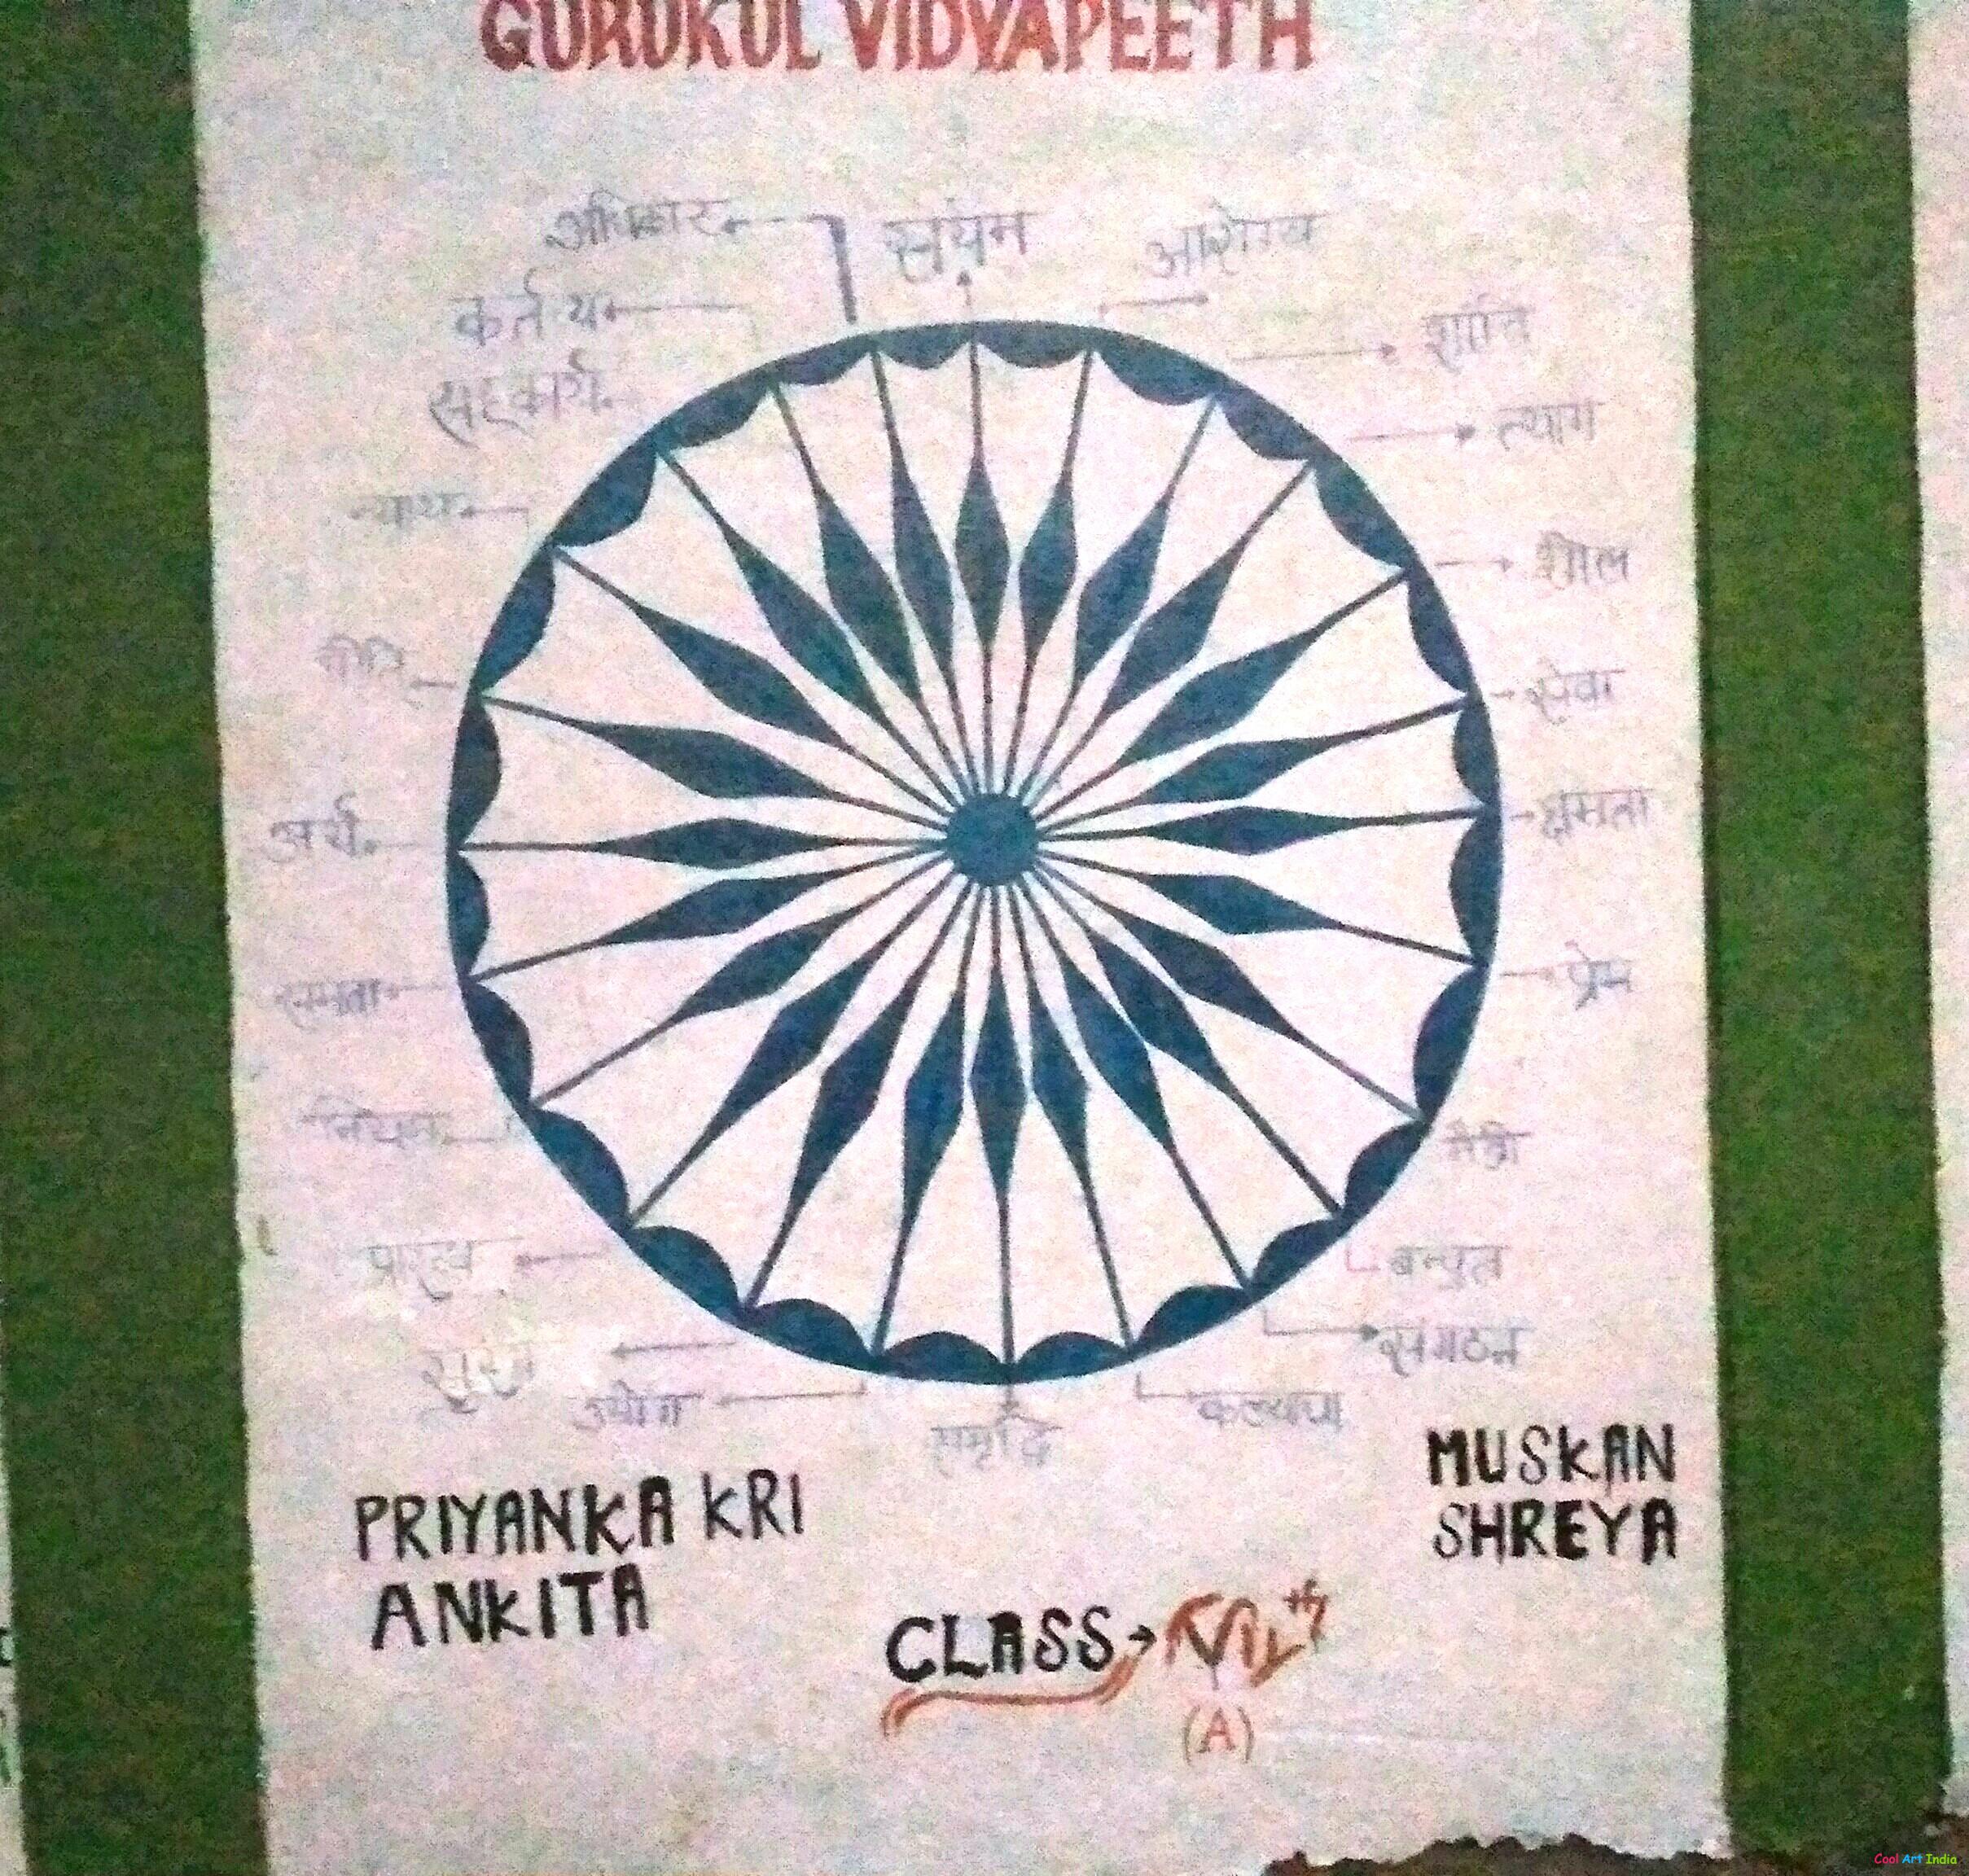 GURUKUL VIDYAPEETH
अधिकार
संयम
आरोग्य
कर्तव्य
शान्ति
सहकार्य
त्याग
न्याय
शील
नीति
सेवा
अर्थ
क्षमता
समता
प्रेम
नियम
मैत्री
बन्धुत्व
संगठन
उद्योग
कल्याण
समृद्धि
MUSKAN
PRIYANKA KRI
SHREYA
ANKITA
CLASS → VII th
(A)
Cool Art India